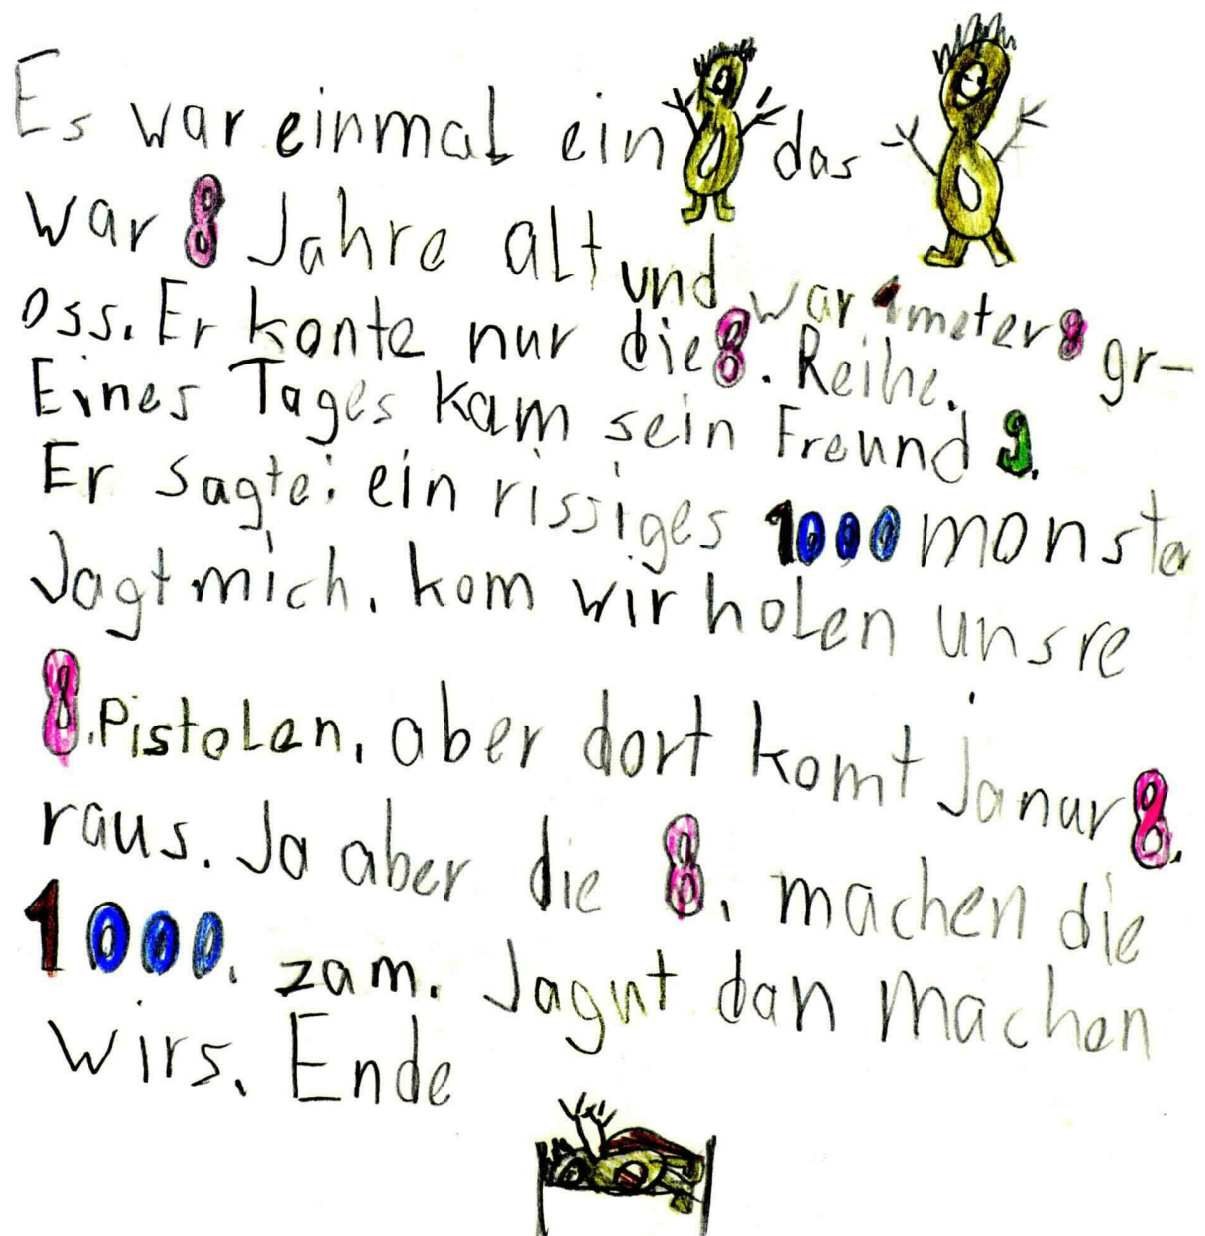 Es war einmal ein 8 das 8
war 8 Jahre alt und war 1meter 8 gr-
oss. Er konte nur die 8. Reihe.
Eines Tages kam sein Freund 9.
Er sagte: ein rissiges 1000 monster
Jagt mich. kom wir holen unsre
8. Pistolen, aber dort komt ja nur 8.
raus. Ja aber die 8. machen die
1000. zam. Ja gut dan machen
wirs. Ende